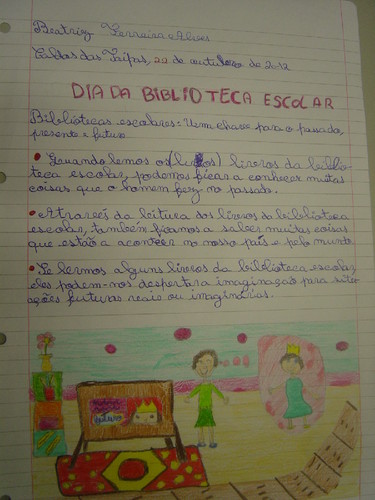 Beatriz Ferreira Alves
Caldas das Taipas, 22 de outubro de 2012
DIA DA BIBLIOTECA ESCOLAR
Bibliotecas escolares: Uma chave para o passado,
presente e futuro
• Quando lemos os livros da biblio-
teca escolar, podemos ficar a conhecer muitas
coisas que o homem fez no passado.
• Através da leitura dos livros da biblioteca
escolar, também ficamos a saber muitas coisas
que estão a acontecer no nosso país e pelo mundo.
• Se lermos alguns livros da biblioteca escolar,
eles podem-nos despertar a imaginação pra situ-
ações futuras reais ou imaginárias.